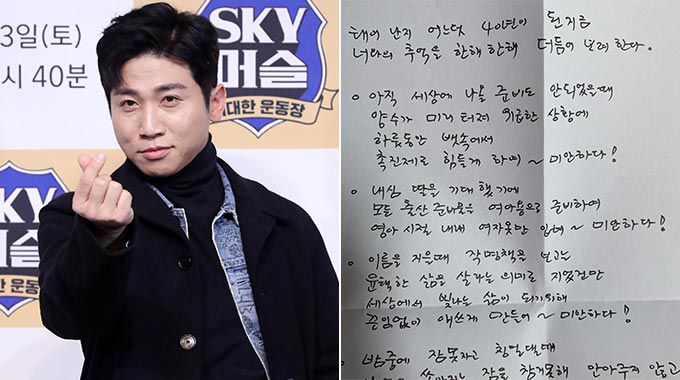 3일(토)
시 40분
SKY
머슬
대한 운동장
SKY
슬
대한 운동장
태어 난지 어느덧 40년이 된지금
너와의 추억을 한해 한해 더듬어 보려 한다.
○ 아직 세상에 나올 준비도 안되었을때
양수가 미리 터져 위급한 상황에
하룻동안 뱃속에서
촉진제로 힘들게 하며 ~ 미안하다!
○ 내심 딸을 기대 했기에
모든 출산 준비물을 여아용으로 준비하여
영아 시절 내내 여자옷만 입혀 ~ 미안하다!
○ 이름을 지을때 작명책을 보고는
윤택한 삶을 살라는 의미로 지었건만
세상에서 빛나는 삶이 되기위해
끈임없이 애쓰게 만들어 ~ 미안하다!
○ 밤중에 잠못자고 칭얼댈때
쏟아지는 잠을 참기못해 안아주지 않고